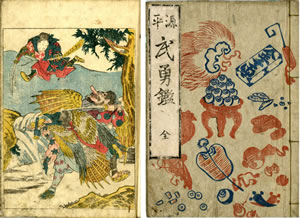 源平
武勇鑑
全